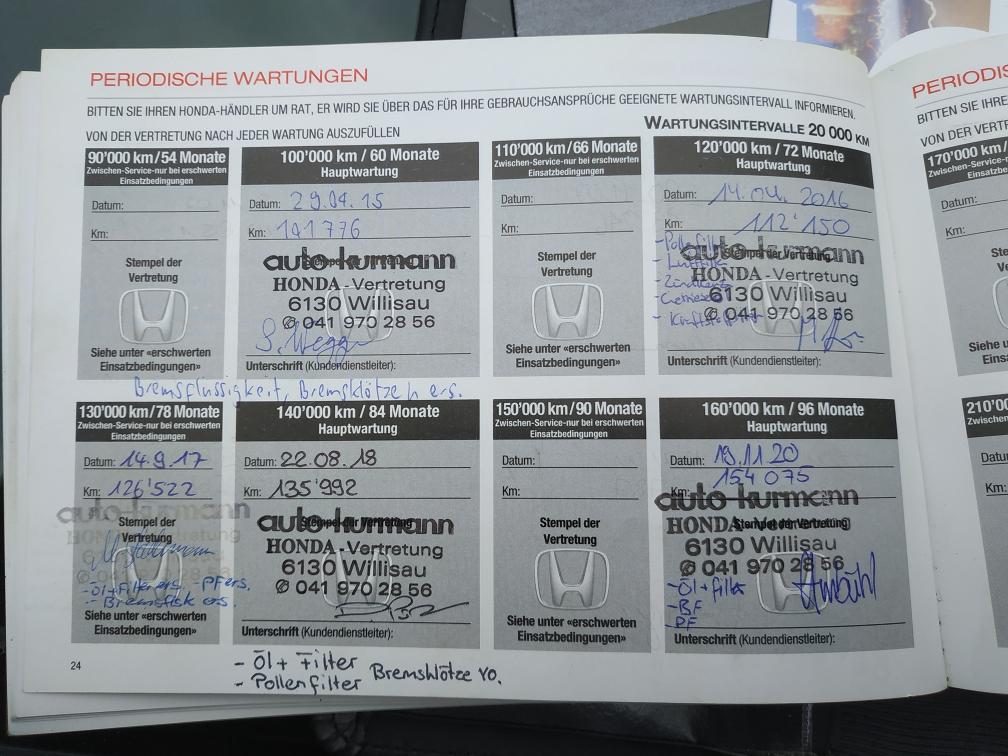 PERIODISCHE WARTUNGEN
BITTEN SIE IHREN HONDA-HÄNDLER UM RAT, ER WIRD SIE ÜBER DAS FÜR IHRE GEBRAUCHSANSPRÜCHE GEEIGNETE WARTUNGSINTERVALL INFORMIEREN.
VON DER VERTRETUNG NACH JEDER WARTUNG AUSZUFÜLLEN
WARTUNGSINTERVALLE 20 000 KM
90'000 km/54 Monate
Zwischen-Service-nur bei erschwerten
Einsatzbedingungen
Datum:
Km:
Stempel der
Vertretung
Siehe unter «erschwerten
Einsatzbedingungen»
100'000 km / 60 Monate
Hauptwartung
Datum: 29.04.15
Km: 101 776
Stempel der Vertretung
auto-kurmann
HONDA-Vertretung
6130 Willisau
✆ 041 970 28 56
Unterschrift (Kundendienstleiter):
Bremsflüssigkeit, Bremsklötze h ers.
110'000 km/66 Monate
Zwischen-Service-nur bei erschwerten
Einsatzbedingungen
Datum:
Km:
Stempel der
Vertretung
Siehe unter «erschwerten
Einsatzbedingungen»
120'000 km / 72 Monate
Hauptwartung
Datum: 14.04.2016
Km: 112'150
Stempel der Vertretung
auto-kurmann
HONDA-Vertretung
6130 Willisau
✆ 041 970 28 56
- Pollenfilter
- Luftfilter
Unterschrift (Kundendienstleiter):
130'000 km/78 Monate
Zwischen-Service-nur bei erschwerten
Einsatzbedingungen
Datum: 14.9.17
Km: 126'522
auto-kurmann
Stempel der
Vertretung
- Öl+Filter ers. - PF ers.
- Bremsflüsk ers.
Siehe unter «erschwerten
Einsatzbedingungen»
140'000 km / 84 Monate
Hauptwartung
Datum: 22.08.18
Km: 135'992
Stempel der Vertretung
auto-kurmann
HONDA-Vertretung
6130 Willisau
✆ 041 970 28 56
Unterschrift (Kundendienstleiter):
- Öl + Filter
- Pollenfilter
Bremsklötze VO.
150'000 km/90 Monate
Zwischen-Service-nur bei erschwerten
Einsatzbedingungen
Datum:
Km:
Stempel der
Vertretung
Siehe unter «erschwerten
Einsatzbedingungen»
160'000 km / 96 Monate
Hauptwartung
Datum: 19.11.20
Km: 154 075
Stempel der Vertretung
auto-kurmann
HONDA-Vertretung
6130 Willisau
✆ 041 970 28 56
- Öl + Filter
- BF
- PF
Unterschrift (Kundendienstleiter):
24
PERIODIS
BITTEN SIE IHRE
VON DER VERTR
170'000 km/
Zwischen-Servic
Einsat
Datum:
Km:
Siehe u
Einsat
210'00
Zwischen
Datu
Km:
Sieh
Ein